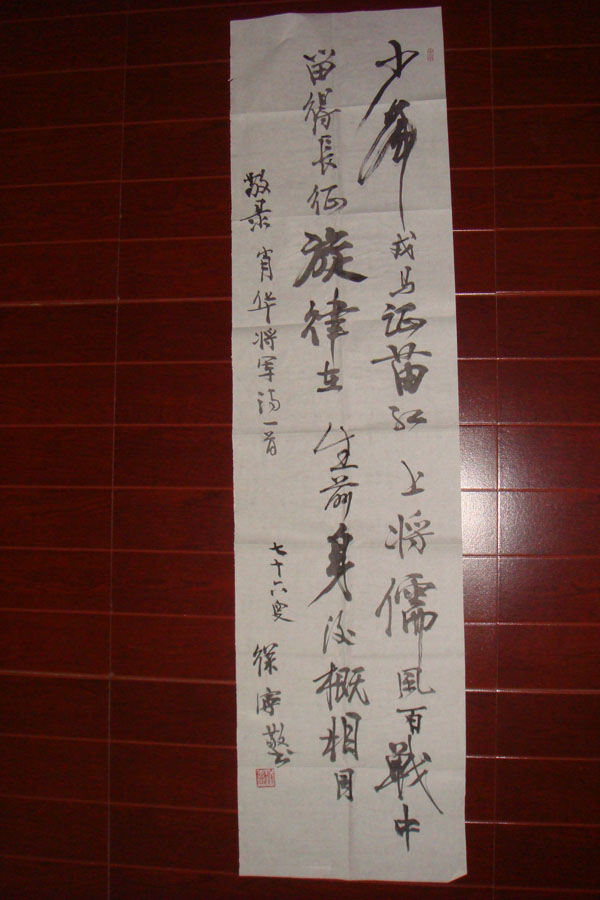 少年戎马证苗红上将儒风百戰中
留得長征旋律在生前身後概相同
敬录肖华将军诗一首
七十六叟徐